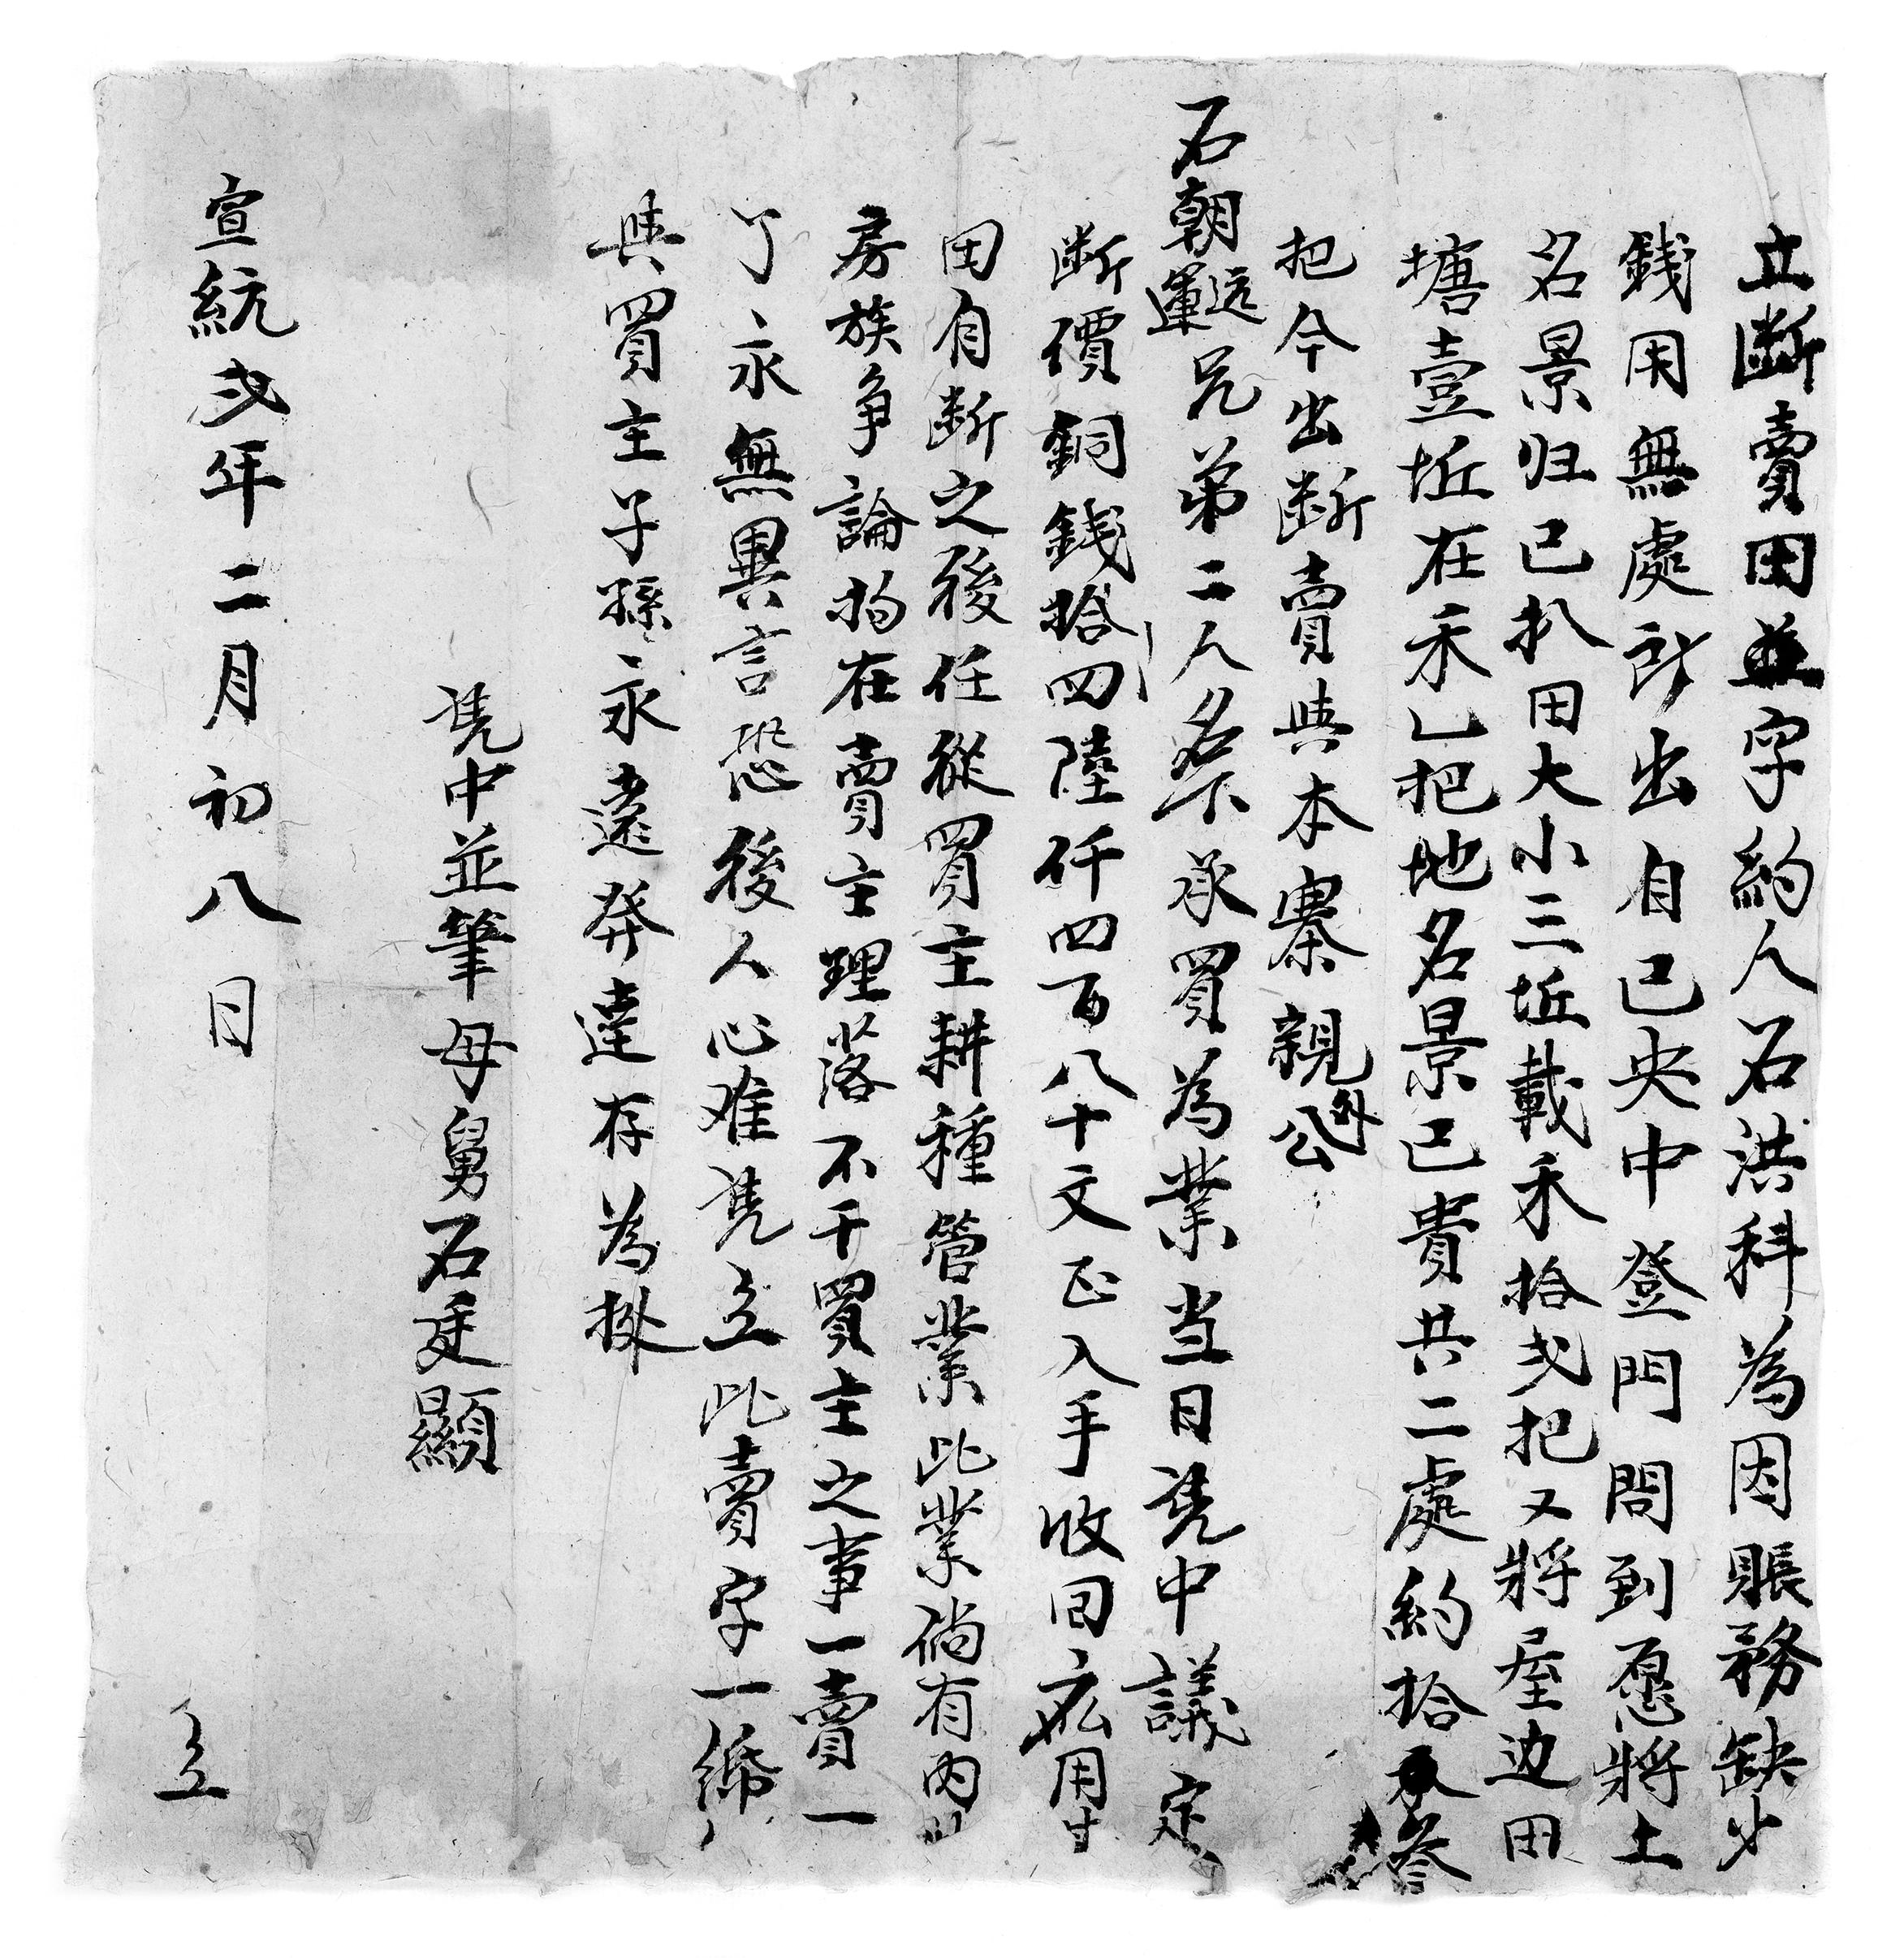 立斷賣田並字約人石洪科為因賬務缺少
銭用無處所出自己央中登門問到愿將土
名景归已扒田大小三坵載禾拾弐把又將屋边田
塘壹坵在禾乚把地名景已貴共二處約拾叁
把今出斷賣與本寨親外公
石朝運远兄弟二人名下承買為業当日凭中議定
斷價銅銭拾四陸仟四百八十文正入手收回應用寸
田自斷之後任從買主耕種管業此業倘有内
房族争論拘在賣主理落不干買主之事一賣一
了永無異言恐後人心难凭立此賣字一㡧
與買主子孫永遠發達存為拠
凭中並筆母舅石廷顯
宣統弍年二月初八日 立